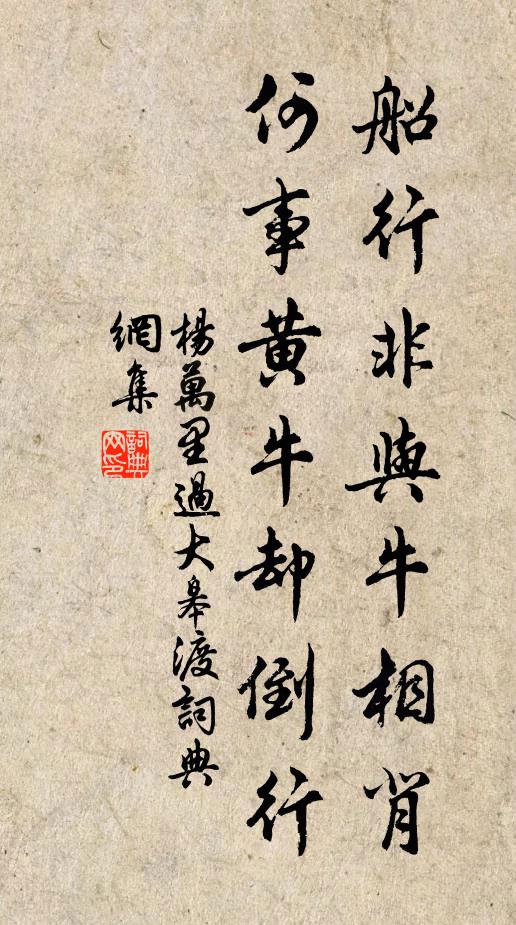 船行非與牛相背
何事黄牛却倒行
楊萬里過大皋渡詞典
網集
詞典
网印